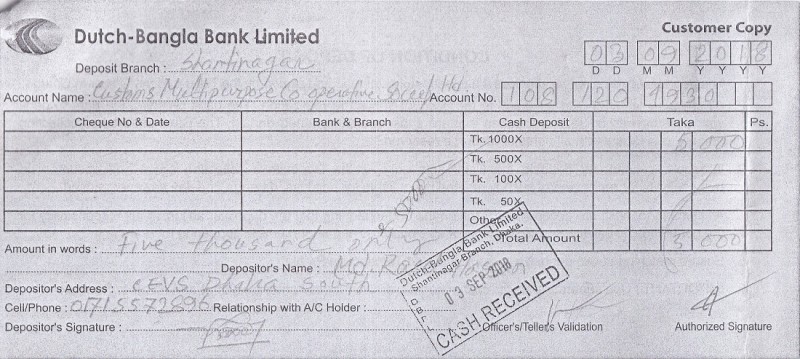 Dutch-Bangla Bank Limited
Customer Copy
Deposit Branch : Shantinagar
03 09 2018
D D M M Y Y Y Y
Account Name : Customs Multipurpose Co-operative Society Ltd Account No. 108 120 4930
Cheque No & Date Bank & Branch Cash Deposit Taka Ps.
Tk. 1000X 5 000
Tk. 500X
Tk. 100X
Tk. 50X
Other
Total Amount 5 000
Amount in words : Five thousand only
Depositor's Name : Md.
Depositor's Address : CEVS Dhaka South
Cell/Phone : 01715572896 Relationship with A/C Holder :
Depositor's Signature :
Officer's/Teller's Validation
Authorized Signature
Dutch-Bangla Bank Limited
Shantinagar Branch, Dhaka.
03 SEP 2018
CASH RECEIVED